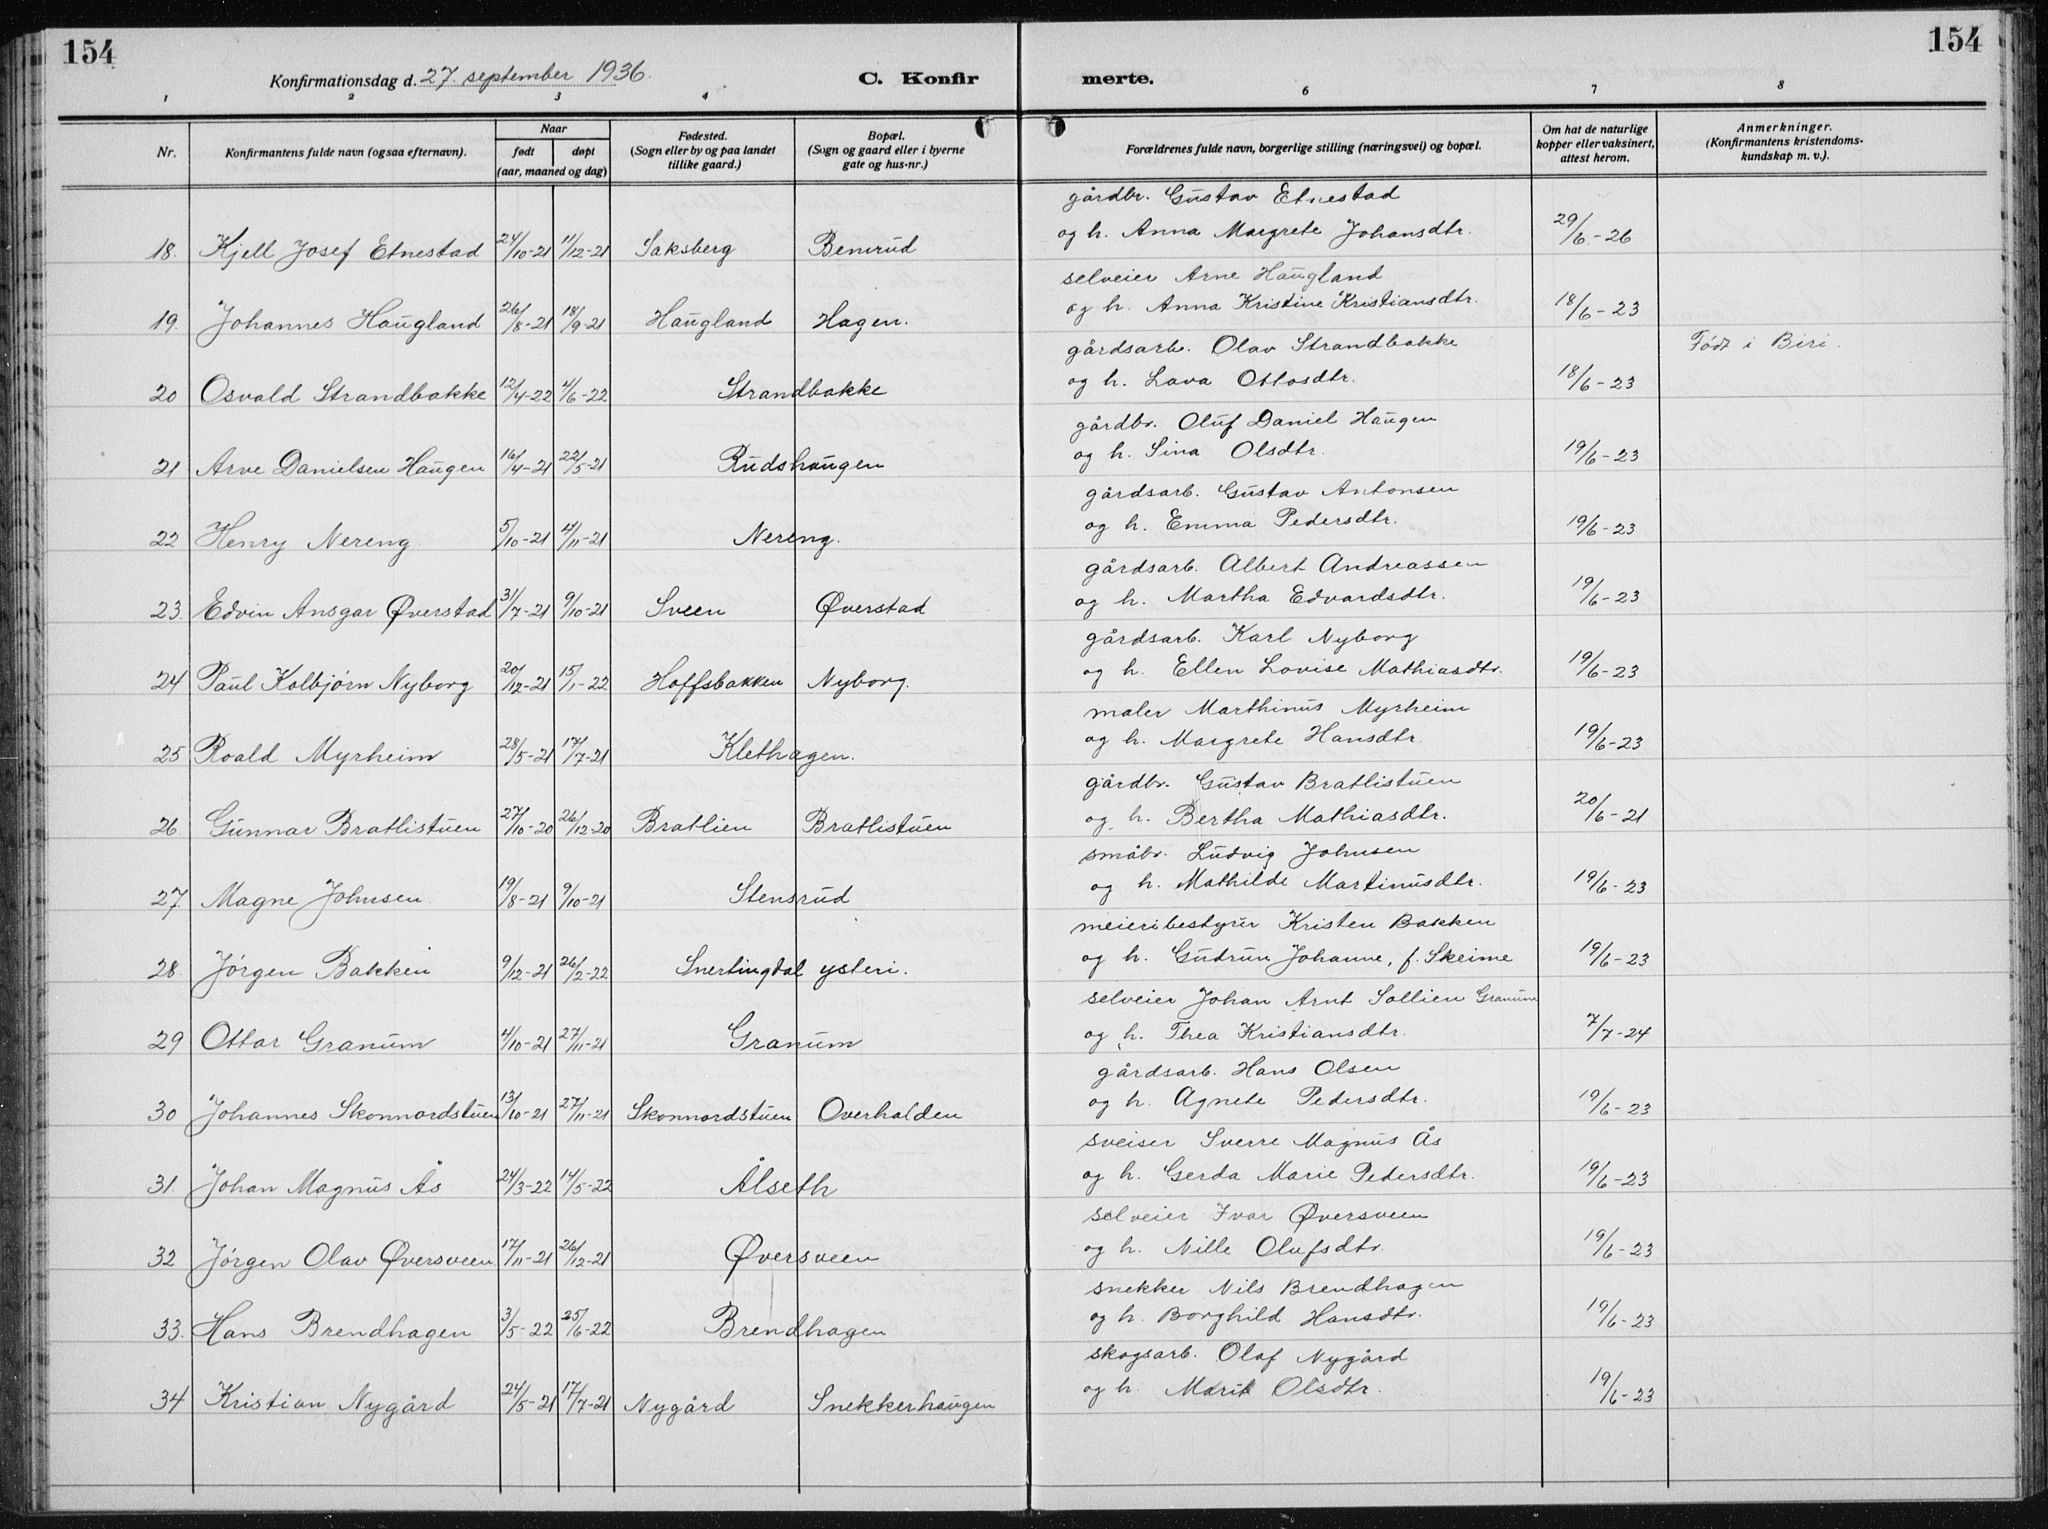 154
154
Konfirmationsdag d. 27. september 1936.
C. Konfir merte.
1 2 3 4 6 7 8
Nr.
Konfirmantens fulde navn (ogsaa efternavn).
Naar
født
døpt
(aar, maaned og dag)
Fødested.
(Sogn eller by og paa landet
tillike gaard.)
Bopæl.
(Sogn og gaard eller i byerne
gate og hus-nr.)
Forældrenes fulde navn, borgerlige stilling (næringsvei) og bopæl.
Om hat de naturlige
kopper eller vaksinert,
attest herom.
Anmerkninger.
(Konfirmantens kristendoms-
kundskap m. v.).
gårdbr. Gustav Etnestad
18. Kjell Josef Etnestad 24/10-21 11/12-21 Saksberg Bemrud og h. Anna Margrete Johansdtr. 29/6-26
selveier Arne Haugland
19. Johannes Haugland 26/8-21 18/9-21 Haugland Hagen. og h. Anna Kristine Kristiansdtr. 18/6-23
gårdsarb. Olav Strandbakke Født i Biri.
20 Osvald Strandbakke 12/4-22 4/6-22 Strandbakke og h. Lava Ottosdtr. 18/6-23
gårdbr. Oluf Daniel Haugen
21 Arve Danielsen Haugen 16/4-21 22/5-21 Rudshaugen og h. Sina Olsdtr. 19/6-23
gårdsarb. Gustav Antonsen
22 Henry Nereng 5/10-21 4/11-21 Nereng. og h. Emma Pedersdtr. 19/6-23
gårdsarb. Albert Andreassen
23. Edvin Ansgar Øverstad 31/7-21 9/10-21 Sveen Øverstad og h. Martha Edvardsdtr. 19/6-23
gårdsarb. Karl Nyborg
24 Paul Kolbjørn Nyborg 20/12-21 15/1-22 Hoffsbakken Nyborg. og h. Ellen Lovise Mathiasdtr. 19/6-23
maler Marthinus Myrheim
25 Roald Myrheim 28/5-21 17/7-21 Klethagen. og h. Margrete Hansdtr. 19/6-23
gårdbr. Gustav Bratlistuen
26. Gunnar Bratlistuen 27/10-20 26/12-20 Bratlien Bratlistuen og h. Bertha Mathiasdtr. 20/6-21
småbr. Ludvig Johnsen
27. Magne Johnsen 19/8-21 9/10-21 Stensrud og h. Mathilde Martinusdtr. 19/6-23
meieribestyrer Kristen Bakken
28. Jørgen Bakken 9/12-21 26/2-22 Snertingdal ysteri. og h. Gudrun Johanne, f. Skeime 19/6-23
selveier Johan Arnt Sollien Granum
29 Ottar Granum 4/10-21 27/11-21 Granum og h. Thea Kristiansdtr. 7/7-24
gårdsarb. Hans Olsen
30 Johannes Skonnordstuen 13/10-21 27/11-21 Skonnordstuen Overhalden og h. Agnete Pedersdtr. 19/6-23
sveiser Sverre Magnus Ås
31. Johan Magnus Ås 24/3-22 14/5-22 Ålseth og h. Gerda Marie Pedersdtr. 19/6-23
selveier Ivar Øversveen
32 Jørgen Olav Øversveen 17/11-21 26/12-21 Øversveen og h. Nille Olufsdtr. 19/6-23
snekker Nils Brendhagen
33. Hans Brendhagen 3/5-22 25/6-22 Brendhagen og h. Borghild Hansdtr. 19/6-23
skogsarb. Olaf Nygård
34 Kristian Nygård 24/5-21 17/7-21 Nygård Snekkerhaugen og h. Marit Olsdtr. 19/6-23